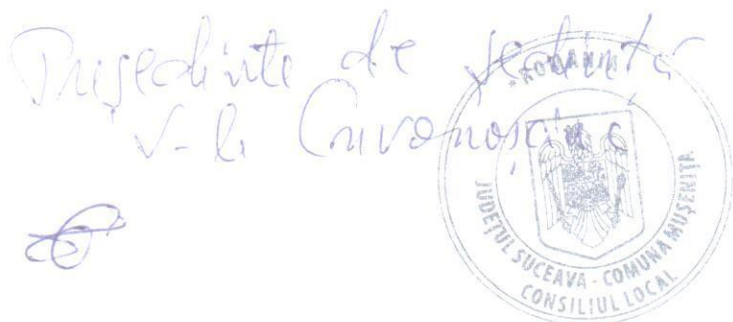 Președinte de ședință
V-le
* ROMÂNIA *
JUDEȚUL SUCEAVA - COMUNA MUȘENIȚA
CONSILIUL LOCAL